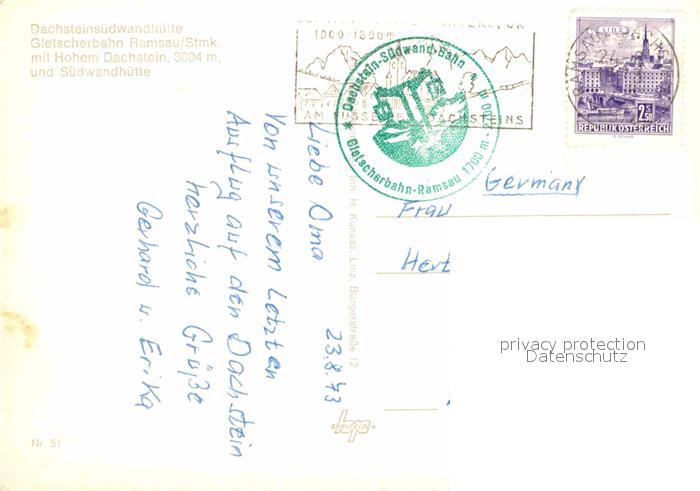 Dachsteinsüdwandhütte
Gletscherbahn Ramsau/Stmk.
mit Hohem Dachstein, 3004 m,
und Südwandhütte
1000-1800m
AM FUSSE DES DACHSTEINS
★ Dachstein-Südwand-Bahn
Gletscherbahn-Ramsau 1700 m -
LINZ
2.50
REPUBLIK ÖSTERREICH
Germany
Frau
Hert
Liebe Oma 23.8.73
Von unserem Letzten
Ausflug auf den Dachstein
herzliche Grüße
Gerhard u. Erika
H. Kunasz, Linz, Bürgerstraße 12
privacy protection
Datenschutz
Nr. 51